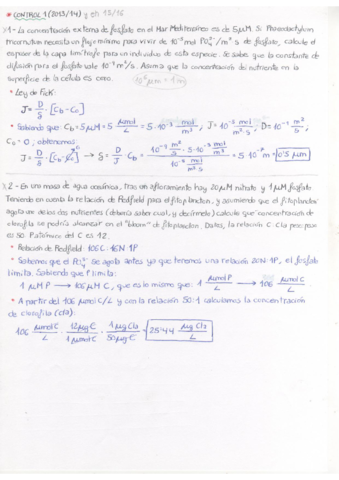 * CONTROL 1 (2013/14) y en 15/16
1- La concentración externa de fosfato en el Mar Mediterráneo es de 5µM. Si Phaeodactylum
necesita un flujo mínimo para vivir de 10⁻⁸ mol PO₄³⁻/m² s de fosfato, calcule el
espesor de la capa límite para un individuo de esta especie. Se sabe que la constante de
difusión para el fosfato vale 10⁻⁹ m²/s. Asuma que la concentración del nutriente en la
superficie de la célula es cero. 10⁶ µm = 1m
* Ley de Fick:
J = D/δ · [Cb - C0]
* Sabiendo que: Cb = 5µM = 5 µmol/L = 5·10⁻³ mol/m³, J = 10⁻⁸ mol/m² s, D = 10⁻⁹ m²/s
C0 = 0; obtenemos
J = D/δ · [Cb - C0] → δ = D/J Cb =
2- En una masa de agua oceánica, tras un afloramiento hay 20µM nitrato y 1µM fosfato
Teniendo en cuenta la relación de Redfield para el fitoplancton, y asumiendo que el fitoplancton
agota uno de los dos nutrientes (debería saber cual, y decírmelo) calcule que concentración de
clorofila se podría alcanzar en el "bloom" de fitoplancton. Datos, la relación C:Cla peso:peso
es 50. Patómico del C es 12.
* Relación de Redfield 106C:16N:1P
* Sabemos que el PO₄³⁻ se agota antes ya que tenemos una relación 20N:1P, el fosfato
limita. Sabiendo que P limita:
1 µM P → 106 µM C, que es lo mismo que: 1 µmol P/L → 106 µmol C/L
* A partir del 106 µmol C/L y con la relación 50:1 calculamos la concentración
de clorofila (Cla):
106 µmol C/L · 12µg C/1µmol C · 1µg Cla/50µg C = 25'44 µg Cla/L